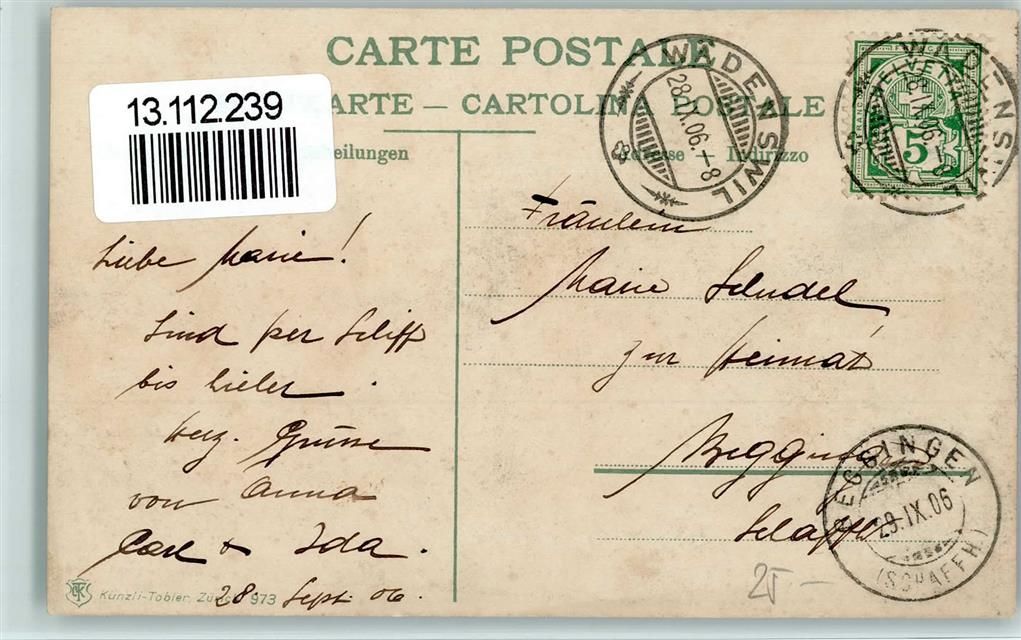 CARTE POSTALE
ARTE — CARTOLINA POSTALE
13.112.239
eilungen
Adresse — Indirizzo
WÄDENSWIL
28.IX.06.-8
WÄDENSWIL
HELVETIA
5
Liebe Marie!
Sind per Schiff
bis hieher.
Herz. Grüsse
von Anna
Carl & Ida.
28. Sept. 06.
Fräulein
Marie Schudel
zur Heimat
Beggingen
Schaffh
BEGGINGEN
29.IX.06
(SCHAFFH.)
Künzli-Tobler, Zürich 973
2.-